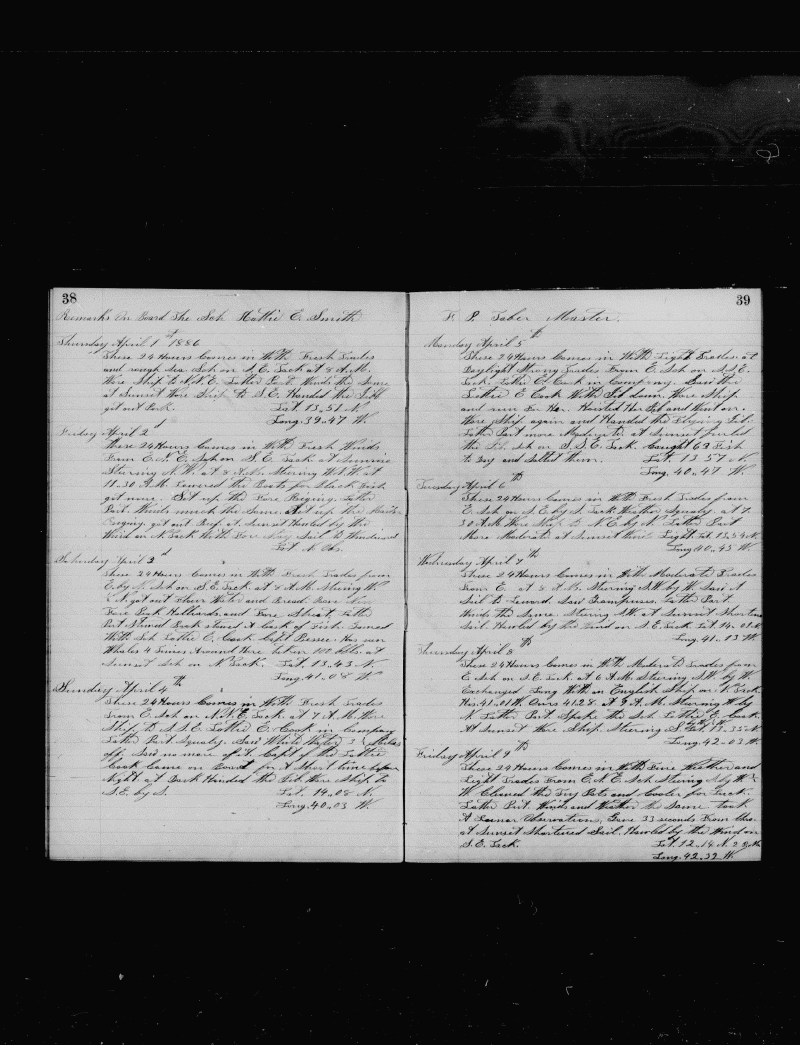 38
Remarks On Board The Sch Hattie E. Smith
Thursday April 1st 1886
These 24 Hours Comes in With Fresh Trades
and rough Sea Sch on S.E. Tack at 8 A.M.
Wore Ship to N.N.E. Latter Part Winds the Same
at Sunset Wore Ship to S.E. Handed the Jibb
got out Pork. Lat. 13-51 N.
Long. 39-47 W.
Friday April 2d
These 24 Hours Comes in With Fresh Winds
From E.N.E. Sch on S.E. Tack at Sunrise
Stering N.W. at 8 A.M. Stering W.S.W. at
11-30 A.M. Lowered the Boats for Black Fish
got none. Set up the Fore Riging. Latter
Part Winds much the Same. Set up the
Riging, got out Beef at Sunset Hauled by the
Wind on N. Tack With Fore Sail
Lat. N Obs.
Saturday April 3d
These 24 Hours Comes in With Fresh Trades from
E. by N. Sch on S.E. Tack at 7 A.M. Stering W.
got out Flour Water and Bread
Fore Peak Halliards, and Fore Sheat Latter
Part Stowed a Cask of Fish. Gamed
With Sch Lottie E. Cook Capt Has seen
Whales 4 Times Around Here taken 100 bbls. at
Sunset Sch on N. Tack. Lat. 13-43 N.
Long. 41-08 W.
Sunday April 4th
These 24 Hours Comes in With Fresh Trades
From E. Sch on N.N.E. Tack. at 7 A.M. Wore
Ship to S.S.E. Lottie E. Cook in Company
Latter Part Squaly. Saw White Water 3
off, Saw no more of it. Capt of the Lottie
Cook Came on Board for A Short time before
Night at Dark Handed the Jib. Wore Ship to
S.E. by S. Lat. 14-08 N.
Long. 40-03 W.
39
F. P. Taber Master.
Monday April 5th
These 24 Hours Comes in With Light Trades. at
Daylight Strong Trades From E. Sch on S.S.E.
Tack. Lottie E. Cook in Company. Saw the
Lottie E Cook With Jib down. Wore Ship.
and run For Her. Hoisted Her Jib and Went on.
Wore Ship again and Handed the Flying Jib.
Latter Part more Moderate. at Sunset furled
the Jib. Sch on S.S.E. Tack. Caught 63 Fish
to Day and Salted them. Lat. 13-57 N.
Long. 40-47 W.
Tuesday April 6th
These 24 Hours Comes in With Fresh Trades from
E. Sch on S.E. by S. Tack Weather Squaly. at 7-
30 A.M. Wore Ship to N.E. by N. Latter Part
More Moderate at Sunset Winds Light. Lat. 13-54 N.
Long. 40-45 W.
Wednesday April 7th
These 24 Hours Comes in With Moderate Trades
From E. at 8 A.M. Stering S.W. by W. Saw A
Sail to Leward. Saw Latter Part
Winds the Same. Stering S.W. at Sunset Shortened
Sail. Hauled by the Wind on S.E. Tack Lat. 14-08 N.
Long. 41-13 W.
Thursday April 8th
These 24 Hours Comes in With Moderate Trades from
E. Sch on S.E. Tack at 6 A.M. Stering S.W. by W.
Exchanged Long With an English Ship on N. Tack.
His. 41-01 W. Ours 41-28. at 9 A.M. Stering W by
N. Latter Part Spoke the Sch Lottie E. Cook.
At Sunset Wore Ship Stering S. Lat. 13-35 N.
Long. 42-03 W.
Friday April 9th
These 24 Hours Comes in With Fine Weather and
Light Trades From E.N.E. Sch Stering S.W. by W.
W. Cleaned the Try Pots and Cooler for Luck.
Latter Part Winds and Weather the Same. took
A Lunar Observation, Gave 33 seconds From
at Sunset Shortened Sail. Hauled by the Wind on
S.E. Tack. Lat. 12-14 N.
Long. 42-32 W.